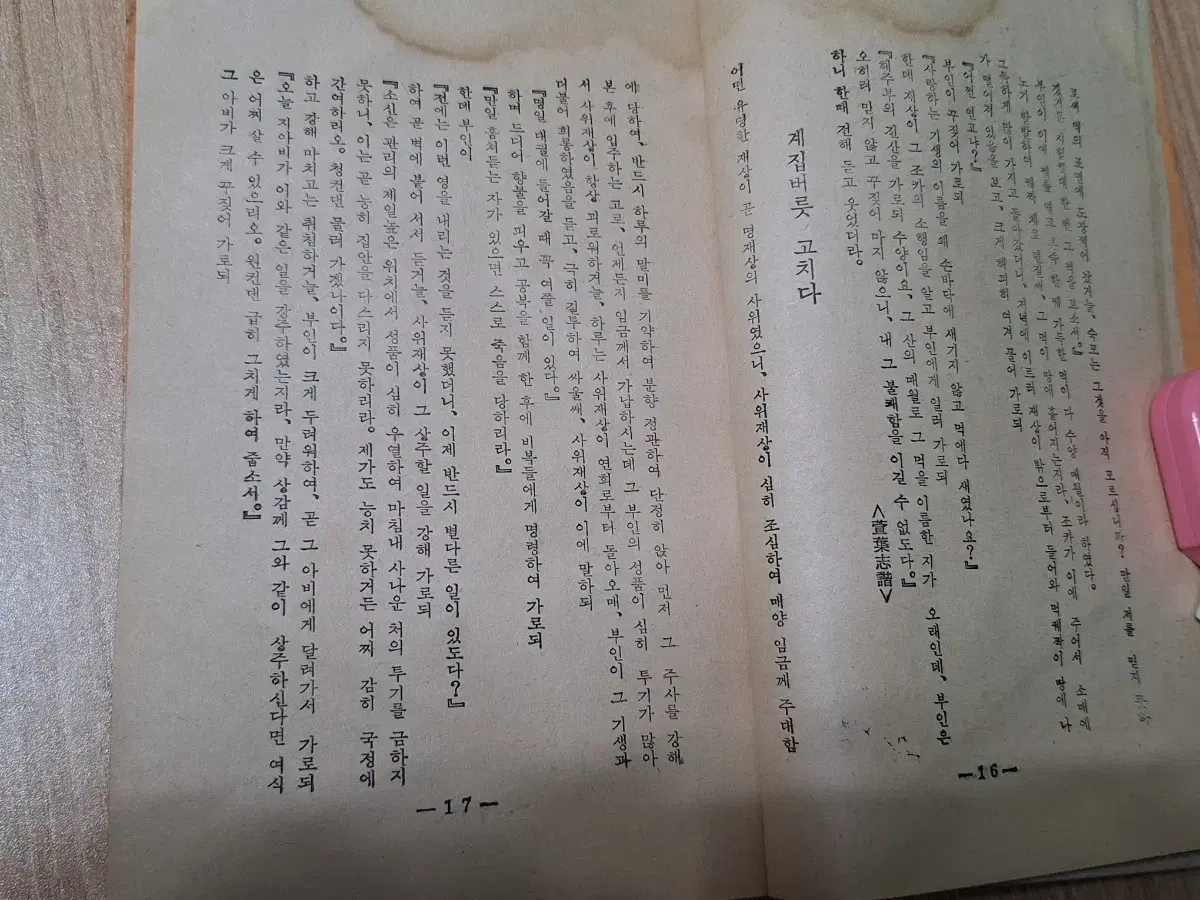 모색 먹의 표면에 도장찍어 놨거늘, 숙모는 그것을 아직 모르십니까? 만일 저를 믿지
컨대 한 번 그 먹을 보소서。』
부인이 이에 궤를 열고 본즉 한 궤 가득한 먹이 다 수양 매월이라 하였다。
노기 발발하여 궤짝 채로 던질쌔, 그 먹이 땅에 흩어지는지라, 조카가 이에 주어서 소매에
그득하게 많이 가지고 돌아갔더니, 저녁에 이르러 재상이 밖으로부터 들어와 먹궤짝이 땅에 나
가 떨어져 있음을 보고, 크게 해괴히 여겨 물어 가로되
『어쩐 연고냐?』
부인이 꾸짖어 가로되
『사랑하는 기생의 이름을 왜 손바닥에 새기지 않고 먹에다 새였나요?』
한데 재상이 그 조카의 소행임을 알고 부인에게 일러 가로되
『해주부의 진산을 가로되 수양이요, 그 산의 매월로 그 먹을 이름한 지가 오래인데, 부인은
오히려 믿지 않고 꾸짖어 마지 않으니, 내 그 불쾌함을 이길 수 없도다。』
하니 한때 전해 듣고 웃었더라。
<蓂葉志諧>
계집버릇 고치다
어떤 유명한 재상이 곧 명재상의 사위였으니, 사위재상이 심히 조심하여 매양 임금께 주대함
—16—
에 당하여, 반드시 하루의 말미를 기약하여 분향 정관하여 단정히 앉아 먼저 그 주사를 강해
본 후에 입주하는 고로, 언제든지 임금께서 가납하시는데 그 부인의 성품이 심히 투기가 많아
서 사위재상이 항상 괴로워하거늘, 하루는 사위재상이 연회로부터 돌아오매, 부인이 그 기생과
더불어 희롱하였음을 듣고, 극히 질투하여 싸울쌔, 사위재상이 이에 말하되
『명일 대궐에 들어갈 때 꼭 여쭐 일이 있다。』
하며 드디어 향불을 피우고 공복을 함께 한 후에 비복들에게 명령하여 가로되
『만일 훔쳐듣는 자가 있으면 스스로 죽음을 당하리라。』
한데 부인이
『전에는 이런 영을 내리는 것을 듣지 못했더니, 이제 반드시 별다른 일이 있도다?』
하여 곧 벽에 붙어 서서 듣거늘, 사위재상이 그 상주할 일을 강해 가로되
『소신은 관리의 제일높은 위치에서 성품이 심히 우열하여 마침내 사나운 처의 투기를 금하지
못하니, 이는 곧 능히 집안을 다스리지 못하리라。제가도 능치 못하거든 어찌 감히 국정에
간여하리오。청컨댄 물러 가겠나이다。』
하고 강해 마치고는 취침하거늘, 부인이 크게 두려워하여, 곧 그 아비에게 달려가서 가로되
『오늘 지아비가 이와 같은 일을 강주하였는지라, 만약 상감께 그와 같이 상주하신다면 여식
은 어찌 살 수 있으리오。원컨댄 급히 그치게 하여 줍소서。』
그 아비가 크게 꾸짖어 가로되
—17—